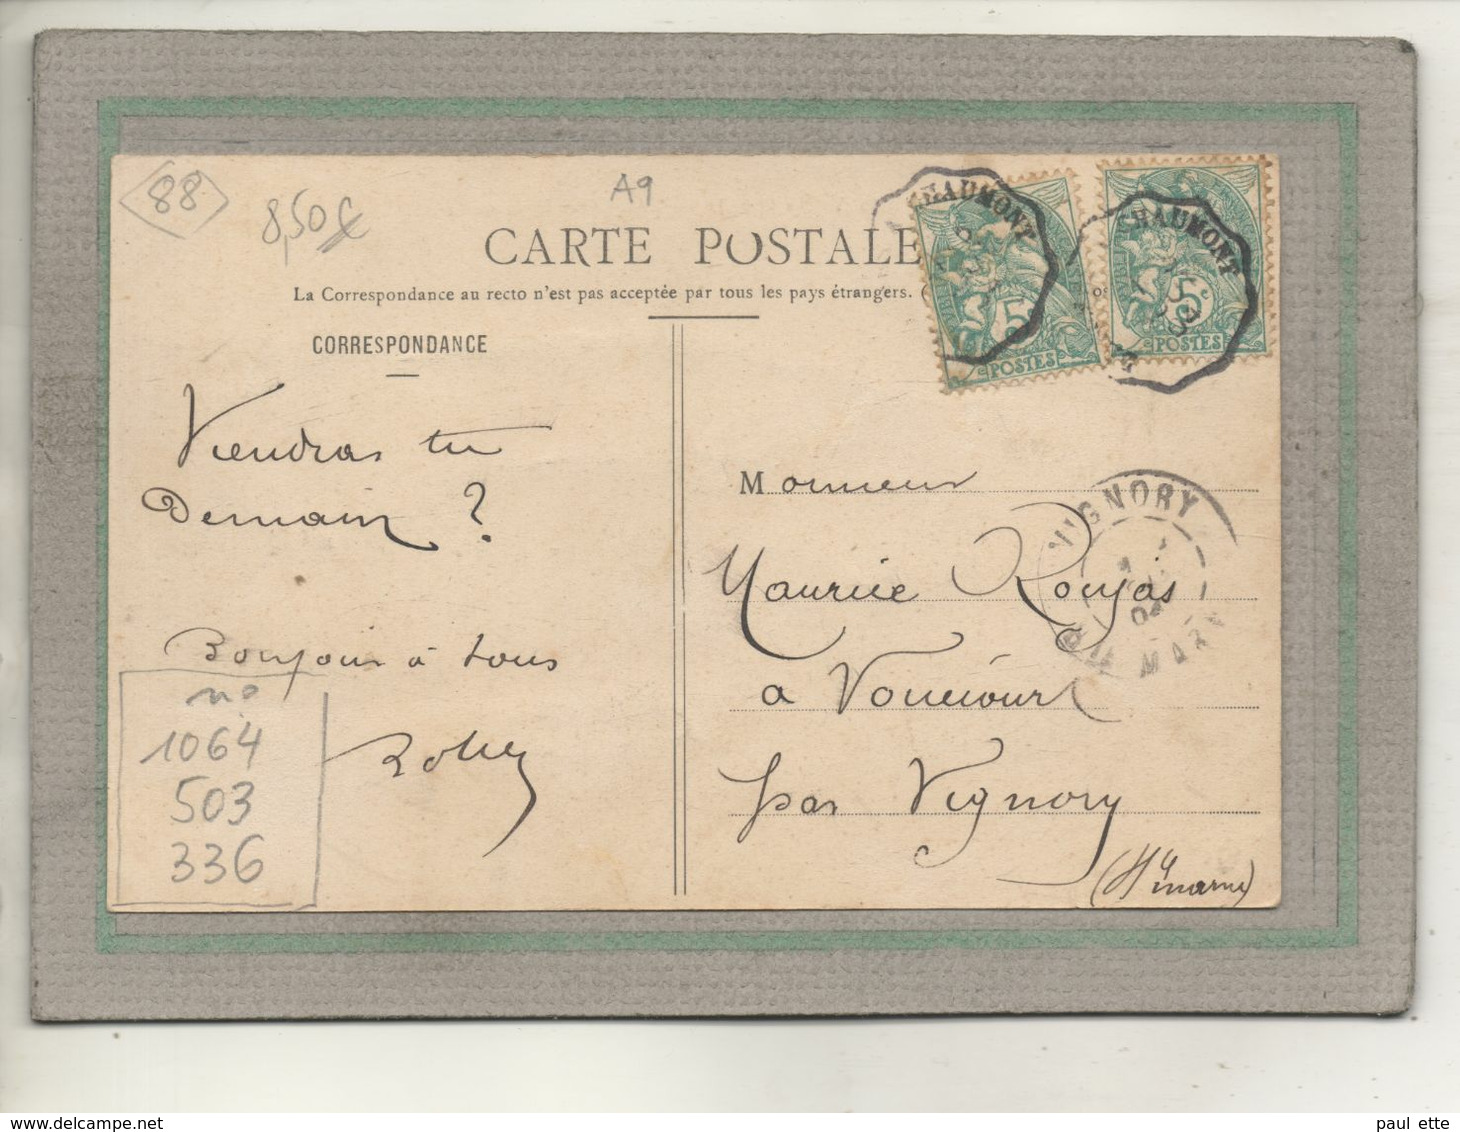 88
8,50€
A9
CARTE POSTALE
La Correspondance au recto n'est pas acceptée par tous les pays étrangers. (
CHAUMONT
CHAUMONT
5c
POSTES
5c
POSTES
CORRESPONDANCE
Viendras tu
Demain ?
Bonjour à tous
no
1064
503
336
Monsieur
Maurice Roujas
a Vouécourt
par Vignory
(Hte marne)
VIGNORY
04
HTE MARNE
paul ette